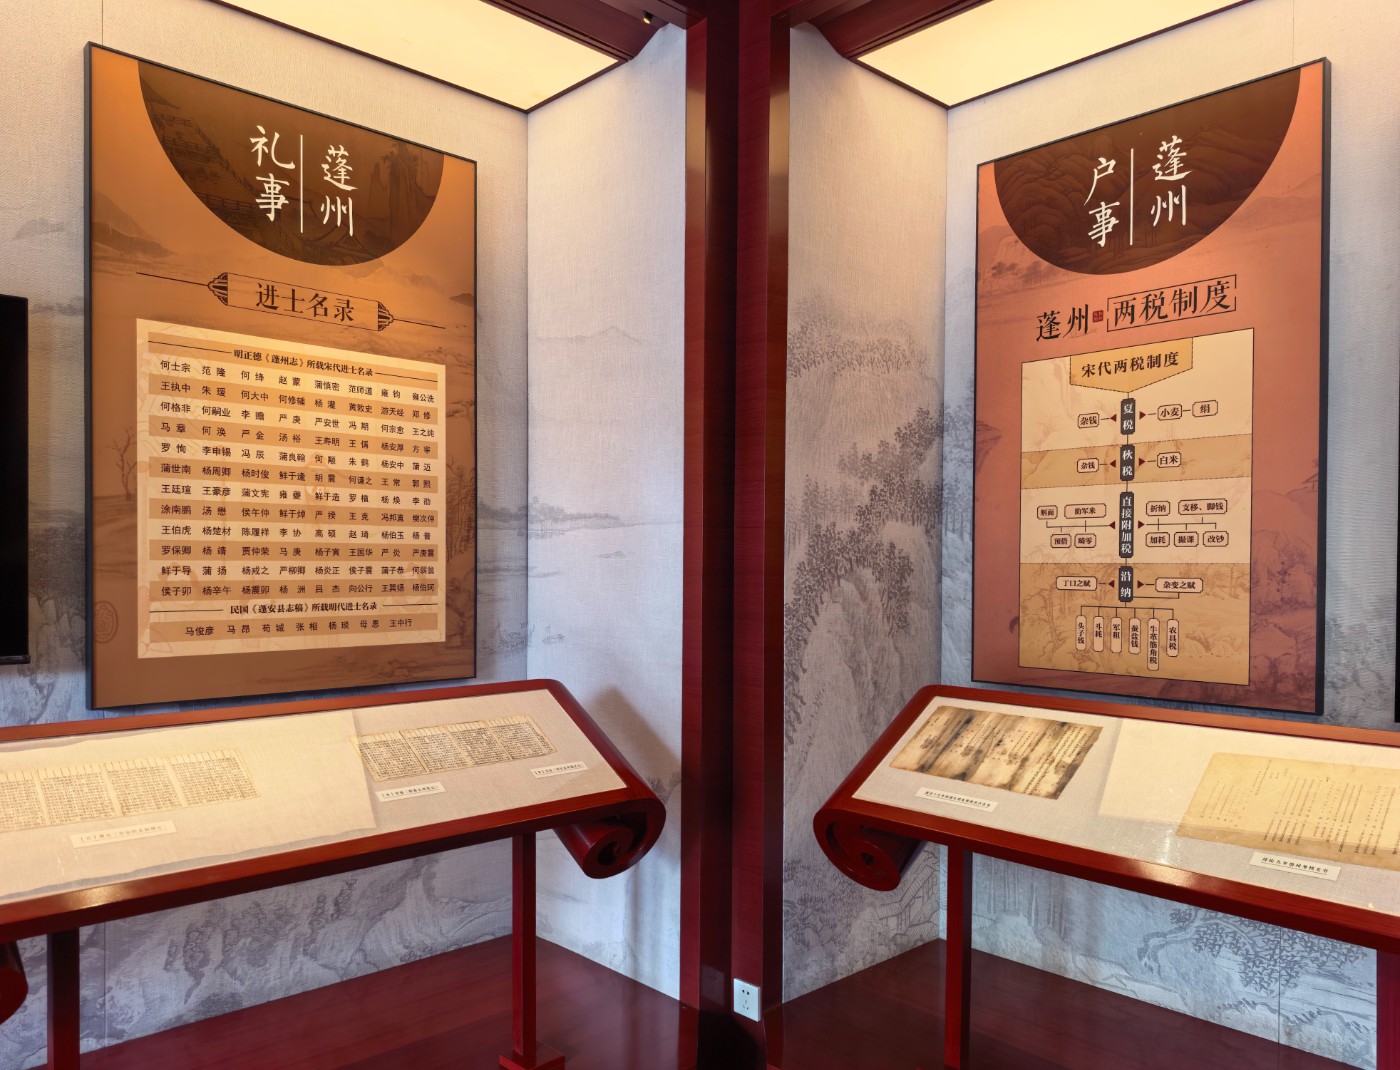 蓬州
礼事
进士名录
明正德《蓬州志》所载宋代进士名录
何士宗 范隆 何绛 赵蒙 蒲慎密 范师道 雍钧 雍公浩
王执中 朱瑗 何大中 何修辅 杨灌 黄敦史 游天经 郑修
何格非 何嗣业 李瞻 严庚 严安世 冯期 何宗愈 王之纯
马章 何涣 严金 汤裕 王寿明 王俌 杨安厚 方宁
罗恂 李申锡 冯辰 蒲良翰 何颙 朱鹤 杨安中 蒲迈
蒲世南 杨周卿 杨时俊 鲜于逢 胡震 何谦之 王常 郭熙
王廷瑄 王豪彦 蒲文宪 雍夔 鲜于造 罗植 杨焕 李劭
涂南鹏 汤懋 侯午仲 鲜于焯 严揆 王克 冯邦直 樊次仲
王伯虎 杨楚材 陈履祥 李协 高硕 赵琦 杨伯玉 杨普
罗保卿 杨靖 贾仲荣 马庚 杨子寅 王国华 严炎 严庚震
鲜于导 蒲扬 杨戒之 严柳卿 杨炎正 侯子震 蒲子恭 何
侯子卯 杨辛午 杨震卯 杨洲 吕杰 向公行 王巽锡 杨伯珂
民国《蓬安县志稿》所载明代进士名录
马俊彦 马昂 苟诚 张相 杨琰 母恩 王中行
蓬州
户事
蓬州 两税制度
宋代两税制度
夏税
杂钱 小麦 绢
秋税
杂钱 白米
直接附加税
助军米 折纳 支移、脚钱
预借 畸零 加耗 撮课 改钞
沿纳
丁口之赋 杂变之赋
头子钱 斗耗 军租 蚕盐钱 牛革筋角税 农具税